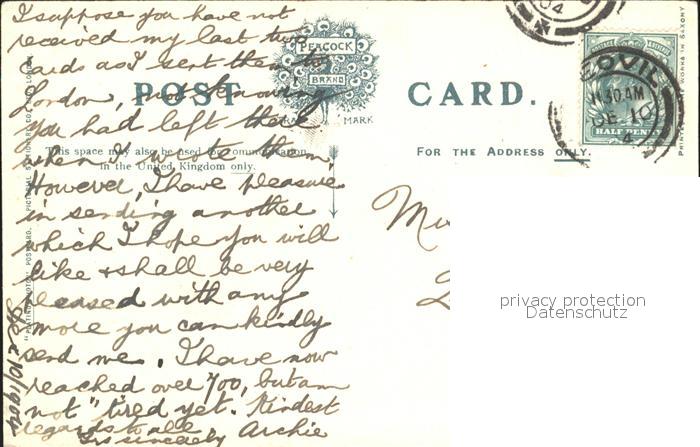 I suppose you have not
received my last two
cards as I sent them to
London, not knowing
you had left there
when I wrote them.
However, I have pleasure
in sending another
which I hope you will
like & shall be very
pleased with any
more you can kindly
send me. I have now
reached over 700, but am
not "tired yet. Kindest
regards to all
Yrs sincerely Archie
Dec 10/1904
POST CARD.
PEACOCK
BRAND
TRADE MARK
This space may also be used for communication
in the United Kingdom only.
FOR THE ADDRESS ONLY.
04
YEOVIL
11.30 AM
DE 10
4
HALF PENNY
privacy protection
Datenschutz